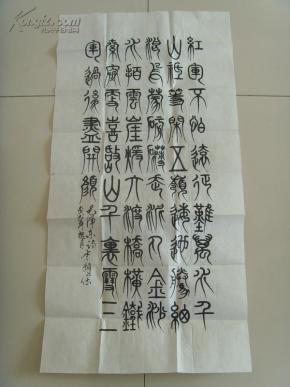 紅軍不怕遠征難萬水千
山祇等閑五嶺逶迤騰細
浪烏蒙磅礴走泥丸金沙
水拍雲崖暖大渡橋橫鐵
索寒更喜岷山千裏雪三
軍過後盡開顏
毛澤東詩